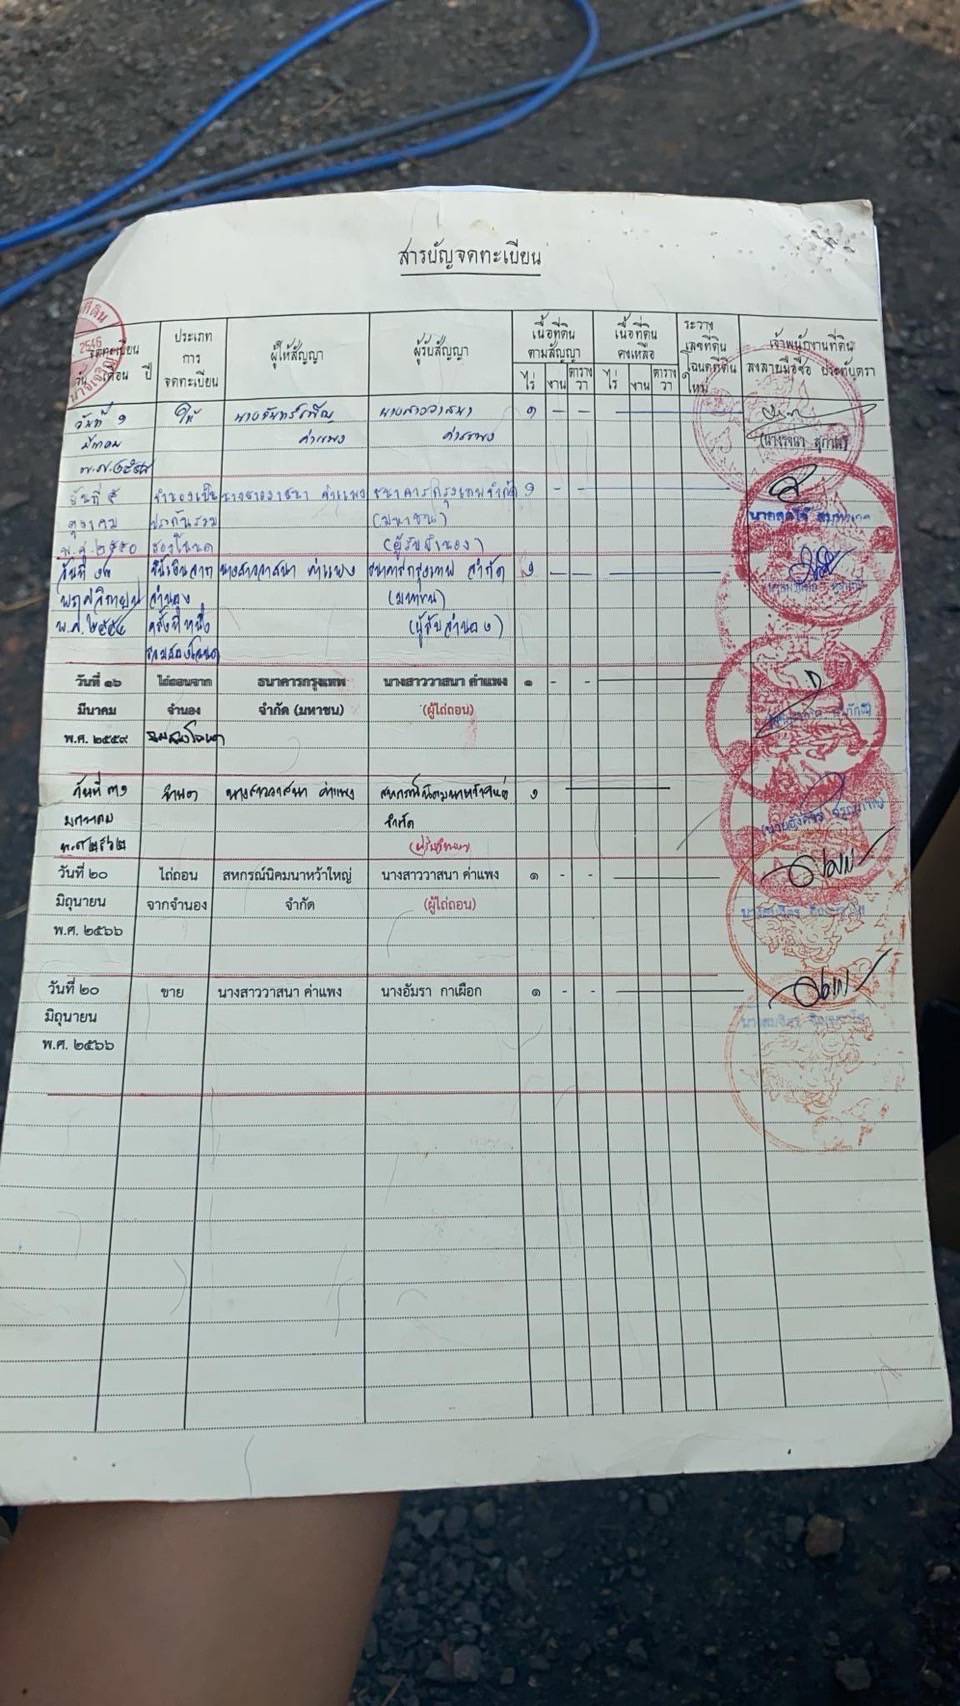 สารบัญจดทะเบียน
จดทะเบียน
วัน เดือน ปี
ประเภท
การ
จดทะเบียน
ผู้ให้สัญญา
ผู้รับสัญญา
เนื้อที่ดิน
ตามสัญญา
ไร่ งาน ตาราง
วา
เนื้อที่ดิน
คงเหลือ
ไร่ งาน ตาราง
วา
ระวาง
เลขที่ดิน
โฉนดที่ดิน
ใหม่
เจ้าพนักงานที่ดิน
ลงลายมือชื่อ ประทับตรา
วันที่ ๑ ให้ นางสาววาสนา ๑ - -
ค่าแพง ค่าแพง
วันที่ ๕ จำนองเป็น นางสาววาสนา ค่าแพง ธนาคารกรุงเทพจำกัด ๑ - -
ตุลาคม ประกันรวม (มหาชน)
พ.ศ. ๒๕๕๐ สองโฉนด (ผู้รับจำนอง)
วันที่ ขึ้นเงินจาก นางสาววาสนา ค่าแพง ธนาคารกรุงเทพ จำกัด ๑ - -
พฤศจิกายน จำนอง (มหาชน)
พ.ศ. ครั้งที่หนึ่ง (ผู้รับจำนอง)
รวมสองโฉนด
วันที่ ๑๖ ไถ่ถอนจาก ธนาคารกรุงเทพ นางสาววาสนา ค่าแพง ๑ - -
มีนาคม จำนอง จำกัด (มหาชน) (ผู้ไถ่ถอน)
พ.ศ. ๒๕๕๙ รวมสองโฉนด
วันที่ ๓๑ จำนอง นางสาววาสนา ค่าแพง สหกรณ์นิคมนาหว้าใหญ่ ๑
มกราคม จำกัด
พ.ศ. ๒๕๖๒ (ผู้รับจำนอง)
วันที่ ๒๐ ไถ่ถอน สหกรณ์นิคมนาหว้าใหญ่ นางสาววาสนา ค่าแพง ๑ - -
มิถุนายน จากจำนอง จำกัด (ผู้ไถ่ถอน)
พ.ศ. ๒๕๖๖
วันที่ ๒๐ ขาย นางสาววาสนา ค่าแพง นางอัมรา กาเผือก ๑ - -
มิถุนายน
พ.ศ. ๒๕๖๖